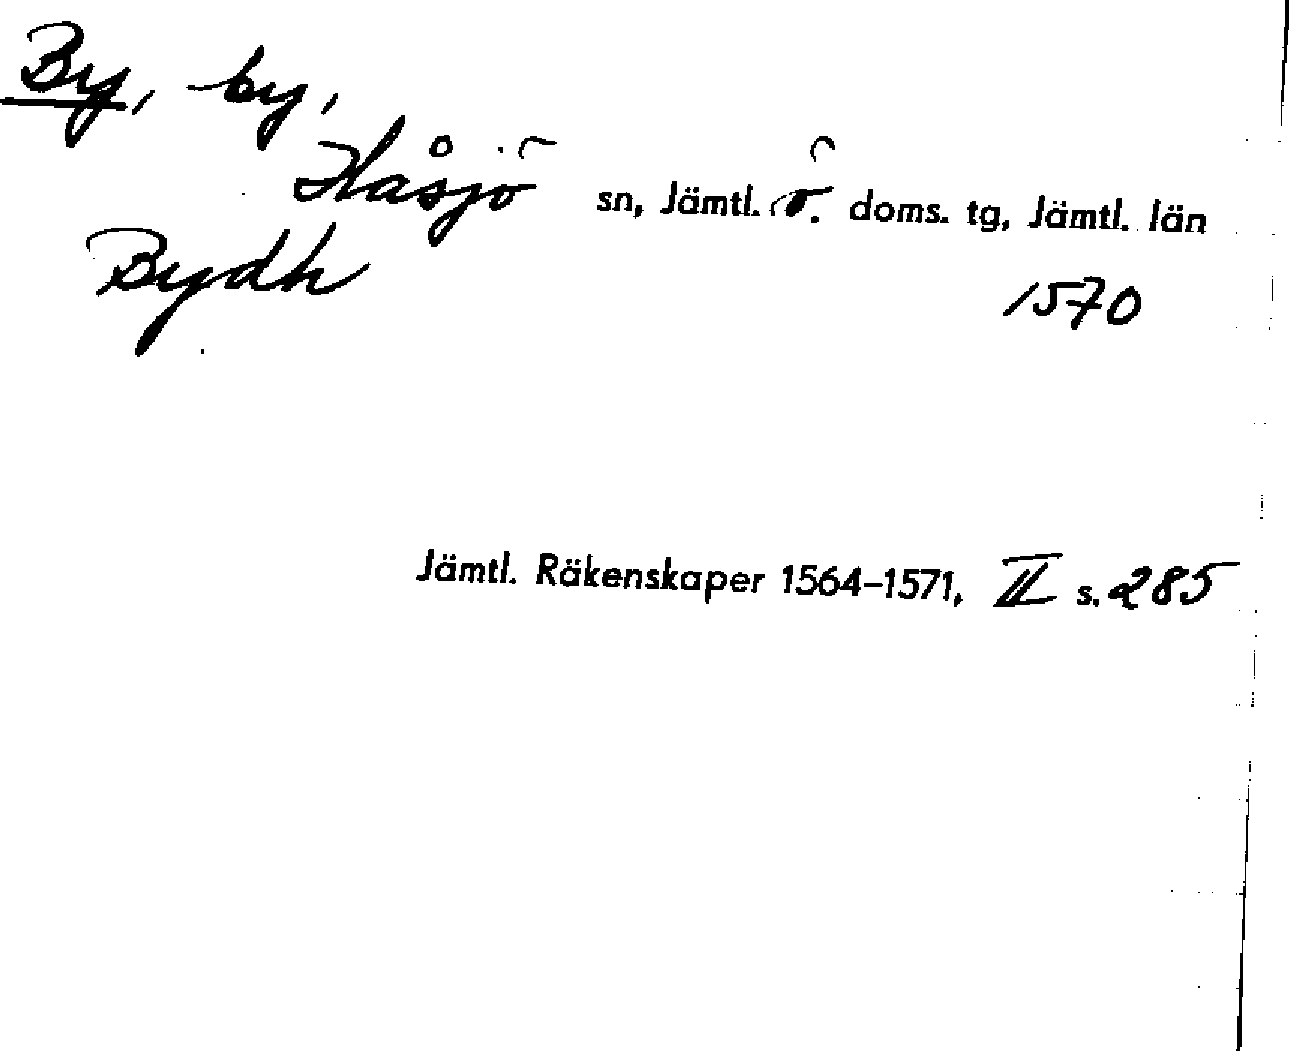 By, by,
Håsjö sn, Jämtl. ö. doms. tg, Jämtl. län
Bydh 1570
Jämtl. Räkenskaper 1564–1571, II s. 285